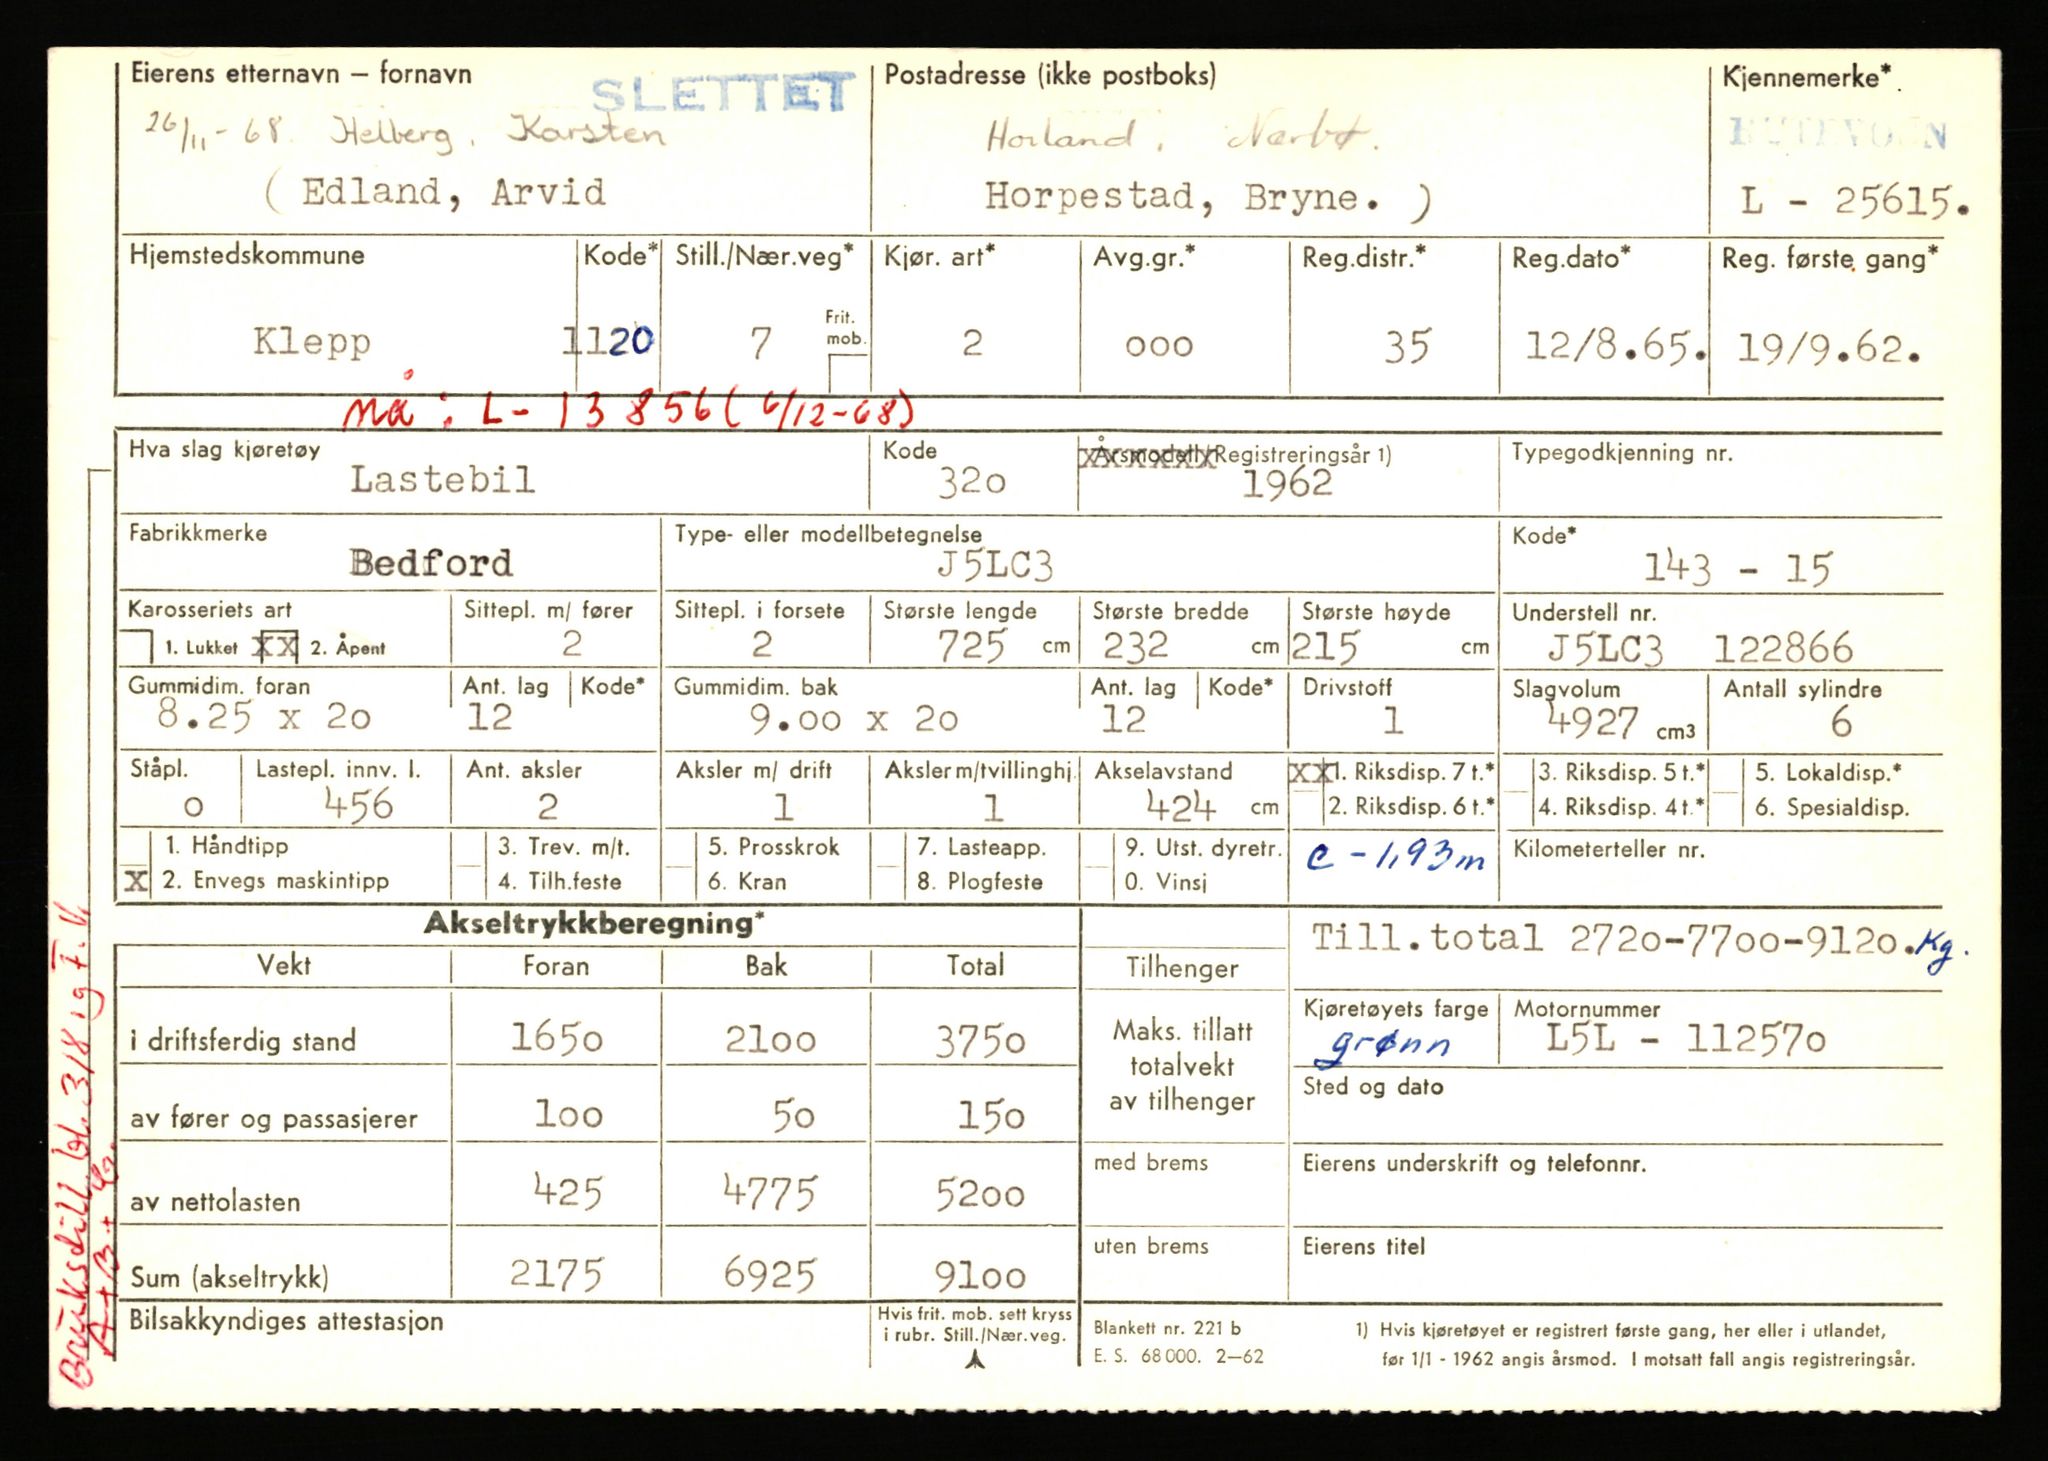 Eierens etternavn – fornavn SLETTET Postadresse (ikke postboks) Kjennemerke*
26/11-68. Helberg, Karsten Horland, Nærbø.
(Edland, Arvid Horpestad, Bryne.) L - 25615.
Hjemstedskommune Kode* Still./Nær.veg* Kjør. art* Avg.gr.* Reg.distr.* Reg.dato* Reg. første gang*
Frit. mob.
Klepp 1120 7 2 000 35 12/8.65. 19/9.62.
nå: L-13856 (6/12-68)
Hva slag kjøretøy Kode Årsmodell/Registreringsår 1) Typegodkjenning nr.
Lastebil 320 1962
Fabrikkmerke Type- eller modellbetegnelse Kode*
Bedford J5LC3 143 - 15
Karosseriets art Sittepl. m/ fører Sittepl. i forsete Største lengde Største bredde Største høyde Understell nr.
1. Lukket XX 2. Åpent 2 2 725 cm 232 cm 215 cm J5LC3 122866
Gummidim. foran Ant. lag Kode* Gummidim. bak Ant. lag Kode* Drivstoff Slagvolum Antall sylindre
8.25 x 20 12 9.00 x 20 12 1 4927 cm3 6
Ståpl. Lastepl. innv. l. Ant. aksler Aksler m/ drift Aksler m/tvillinghj. Akselavstand XX 1. Riksdisp. 7 t.* 3. Riksdisp. 5 t.* 5. Lokaldisp.*
0 456 2 1 1 424 cm 2. Riksdisp. 6 t.* 4. Riksdisp. 4 t.* 6. Spesialdisp.
1. Håndtipp 3. Trev. m/t. 5. Prosskrok 7. Lasteapp. 9. Utst. dyretr. c - 1,93 m Kilometerteller nr.
X 2. Envegs maskintipp 4. Tilh.feste 6. Kran 8. Plogfeste 0. Vinsj
Akseltrykkberegning* Till.total 2720-7700-9120. Kg.
Vekt Foran Bak Total Tilhenger
Kjøretøyets farge Motornummer
i driftsferdig stand 1650 2100 3750 Maks. tillatt grønn L5L - 112570
totalvekt
Sted og dato
av fører og passasjerer 100 50 150 av tilhenger
med brems Eierens underskrift og telefonnr.
av nettolasten 425 4775 5200
uten brems Eierens titel
Sum (akseltrykk) 2175 6925 9100
Bilsakkyndiges attestasjon Hvis frit. mob. sett kryss Blankett nr. 221 b 1) Hvis kjøretøyet er registrert første gang, her eller i utlandet,
i rubr. Still./Nær.veg. E. S. 68 000. 2–62 før 1/1 - 1962 angis årsmod. I motsatt fall angis registreringsår.